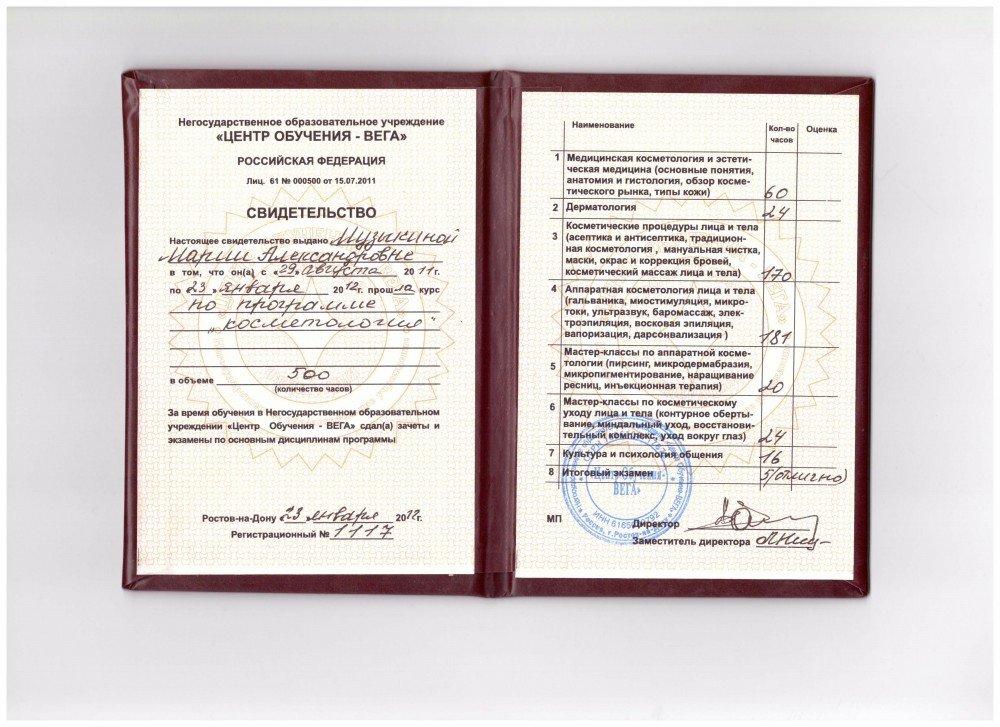 Негосударственное образовательное учреждение
«ЦЕНТР ОБУЧЕНИЯ - ВЕГА»
РОССИЙСКАЯ ФЕДЕРАЦИЯ
Лиц. 61 № 000500 от 15.07.2011
СВИДЕТЕЛЬСТВО
Настоящее свидетельство выдано Музыкиной
Марии Александровне
в том, что он(а) с «29» августа 2011г.
по «23» января 2012г. прошла курс
по программе
„косметология"
в объеме 500
(количество часов)
За время обучения в Негосударственном образовательном
учреждении «Центр Обучения - ВЕГА» сдал(а) зачеты и
экзамены по основным дисциплинам программы
Ростов-на-Дону 23 января 2012г.
Регистрационный № 1117
Наименование Кол-во часов Оценка
1 Медицинская косметология и эстети-
ческая медицина (основные понятия,
анатомия и гистология, обзор косме-
тического рынка, типы кожи) 60
2 Дерматология 24
Косметические процедуры лица и тела
3 (асептика и антисептика, традицион-
ная косметология , мануальная чистка,
маски, окрас и коррекция бровей,
косметический массаж лица и тела) 170
4 Аппаратная косметология лица и тела
(гальваника, миостимуляция, микро-
токи, ультразвук, баромассаж, элек-
троэпиляция, восковая эпиляция,
вапоризация, дарсонвализация ) 181
Мастер-классы по аппаратной косме-
5 тологии (пирсинг, микродермабразия,
микропигментирование, наращивание
ресниц, инъекционная терапия) 20
Мастер-классы по косметическому
6 уходу лица и тела (контурное оберты-
вание, миндальный уход, восстанови-
тельный комплекс, уход вокруг глаз) 24
7 Культура и психология общения 16
8 Итоговый экзамен 5(отлично)
«Центр Обучения-
ВЕГА»
МП Директор
Заместитель директора